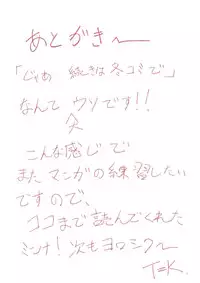 あとがき〜
「じゃあ 続きは冬コミで」
なんて ウソです!!
こんな感じで
また マンガの練習したい
ですので、
ココまで読んでくれた
ミンナ! 次もヨロシク〜
T=K.